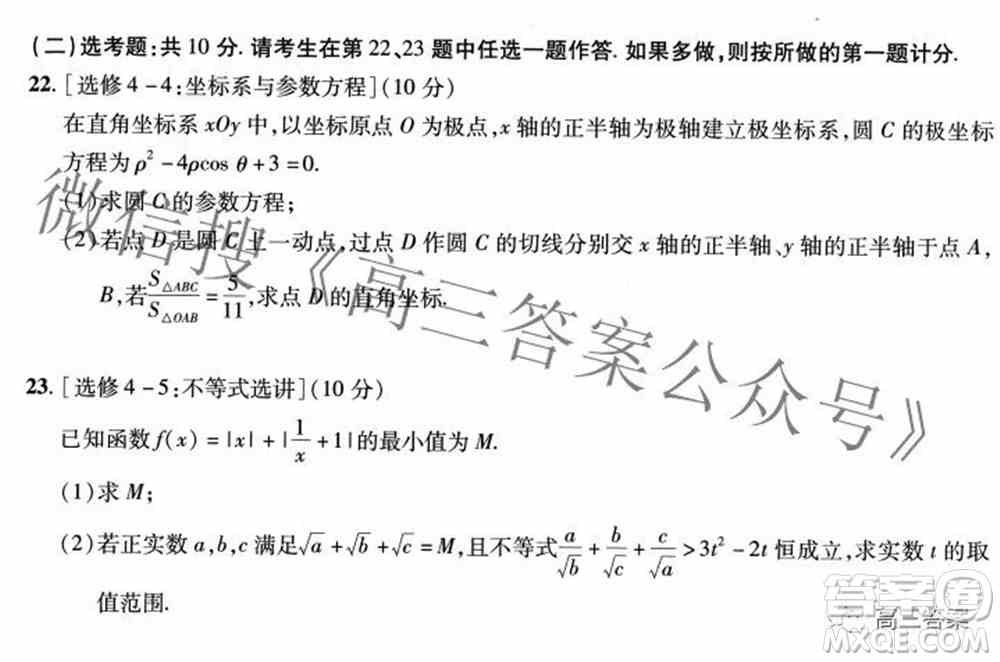 (二)选考题:共10分.请考生在第22、23题中任选一题作答.如果多做,则按所做的第一题计分.
22.[选修4-4:坐标系与参数方程](10分)
在直角坐标系xOy中,以坐标原点O为极点,x轴的正半轴为极轴建立极坐标系,圆C的极坐标
方程为ρ²-4ρcos θ+3=0.
(1)求圆C的参数方程;
(2)若点D是圆C上一动点,过点D作圆C的切线分别交x轴的正半轴、y轴的正半轴于点A,
B,若S△ABC/S△OAB=5/11,求点D的直角坐标.
23.[选修4-5:不等式选讲](10分)
已知函数f(x)=|x|+|1/x+1|的最小值为M.
(1)求M;
(2)若正实数a,b,c满足√a+√b+√c=M,且不等式a/√b+b/√c+c/√a>3t²-2t恒成立,求实数t的取
值范围.
微信搜《高三答案公众号》
答案卷
高三答案
MXQE.COM